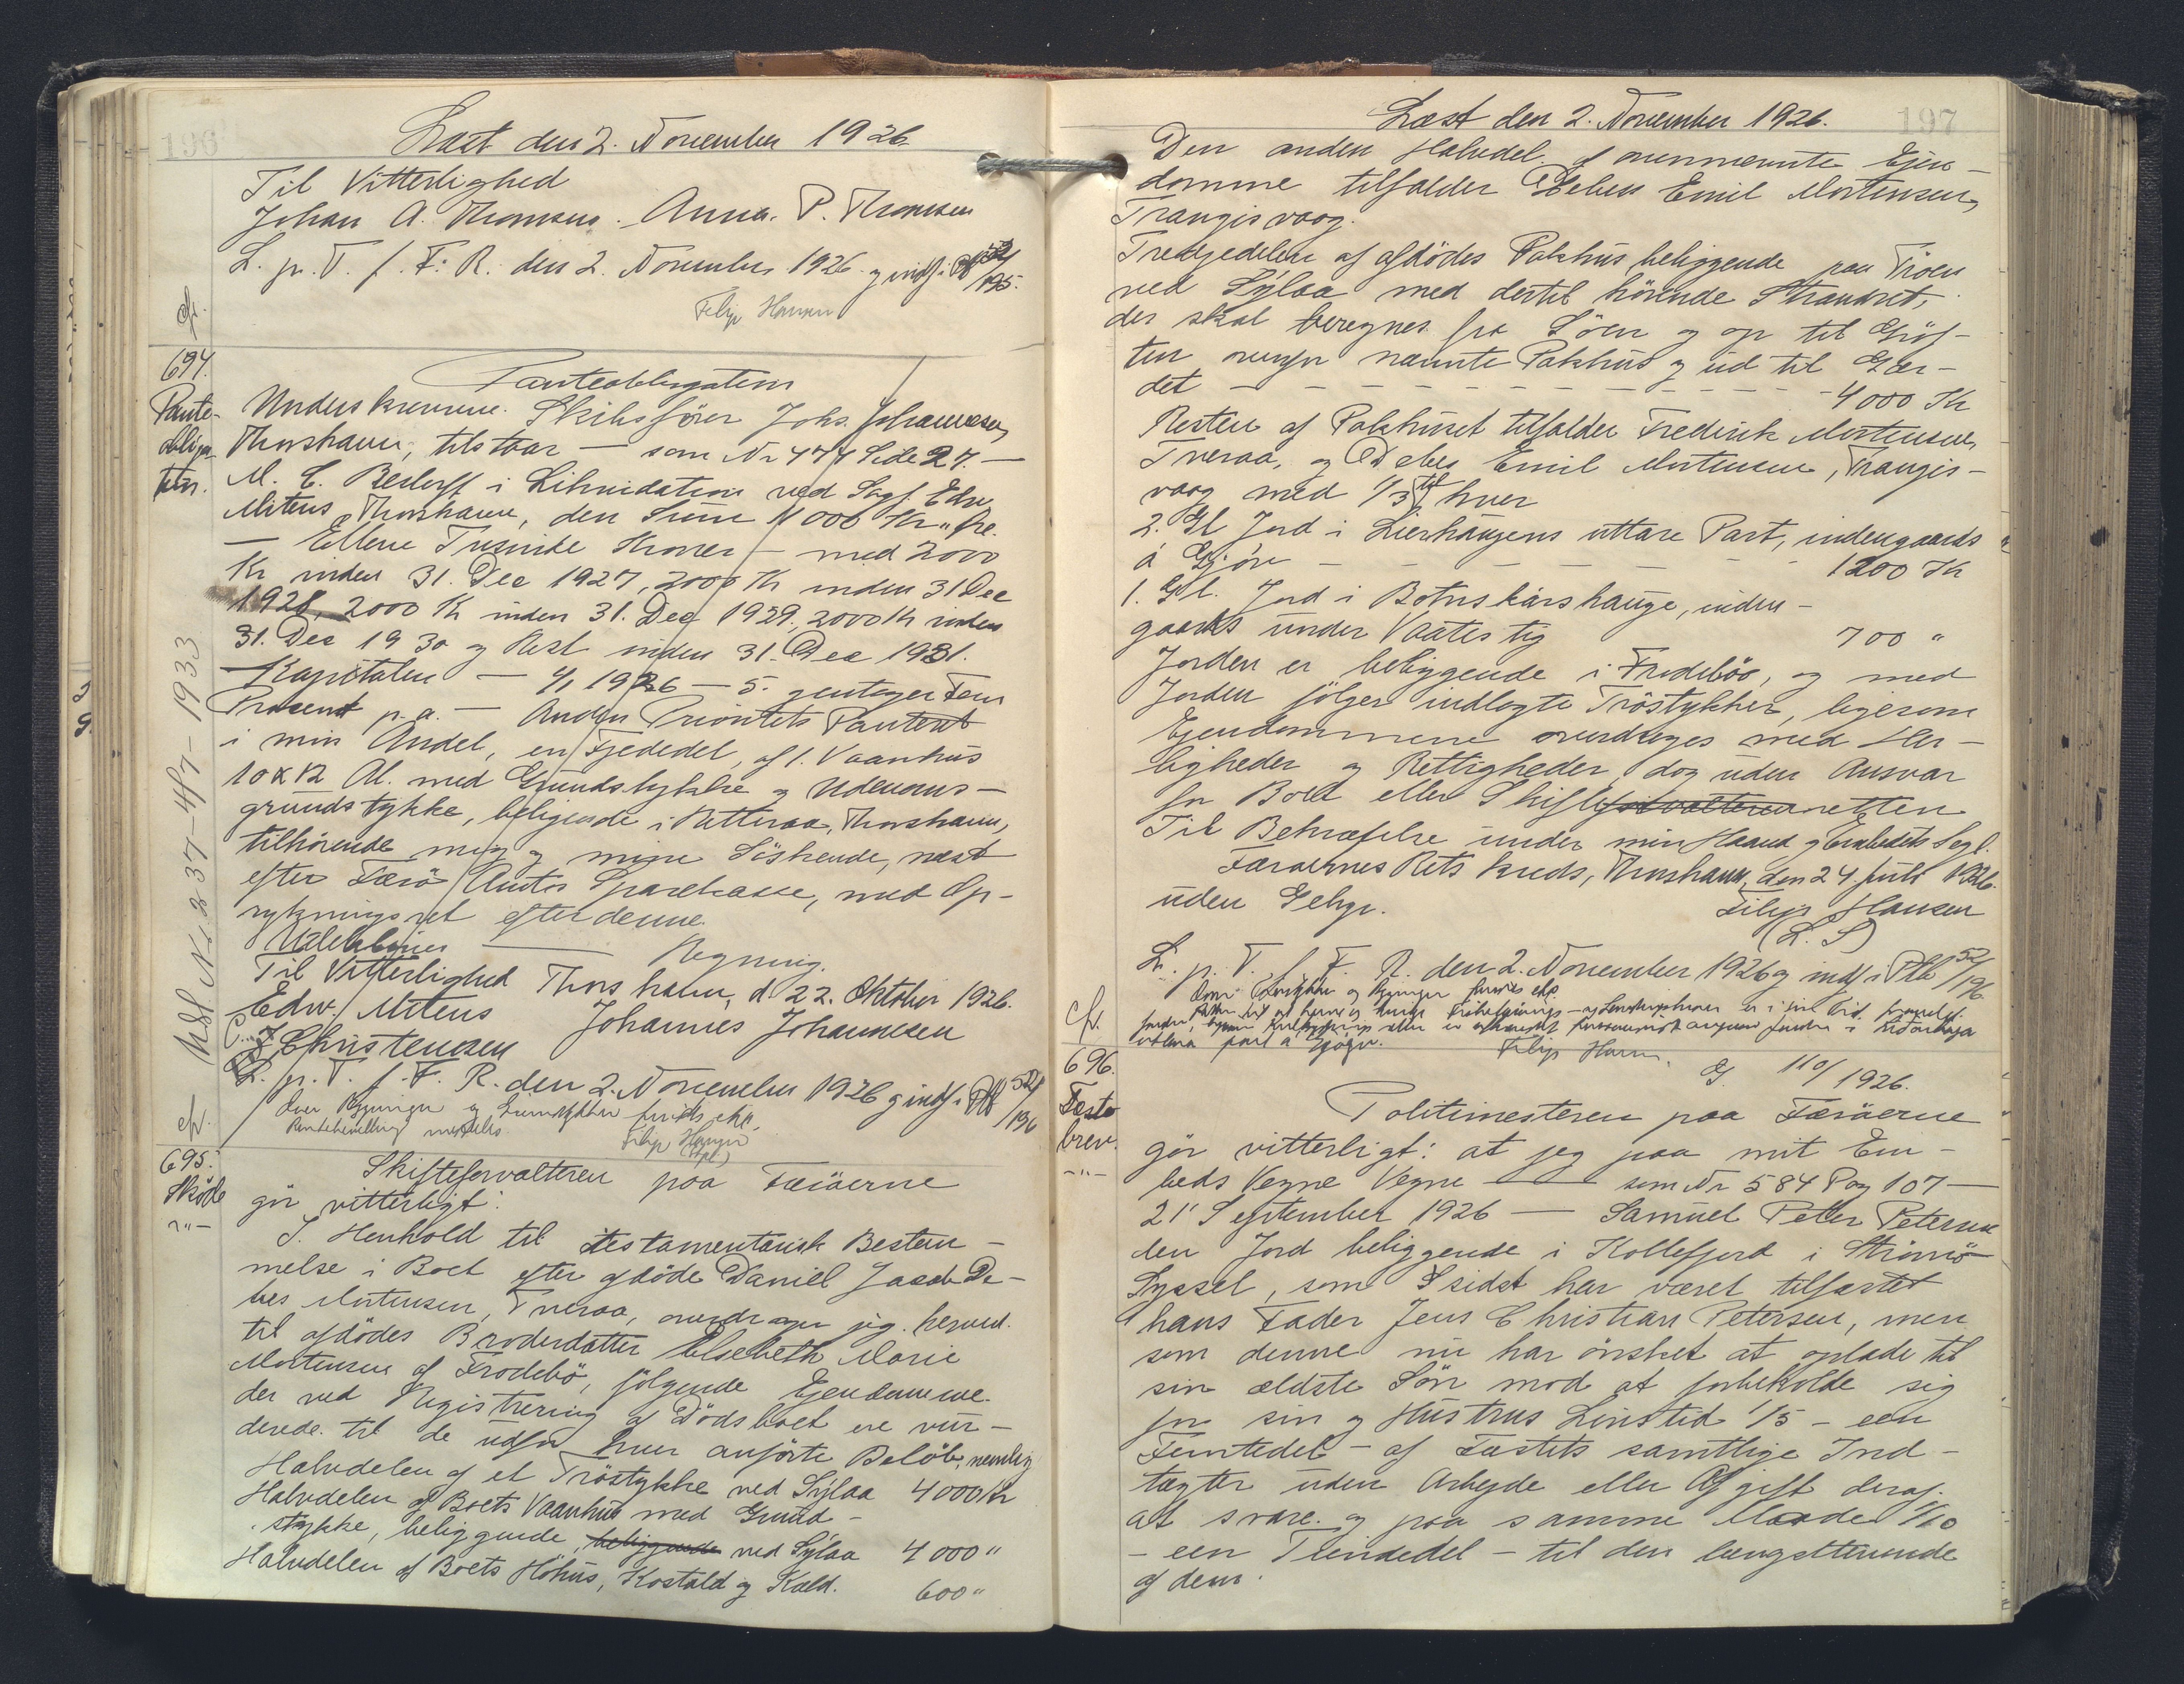 196
Læst den 2. November 1926.
Til Vitterlighed
Johan A. Thomsen. Anna. P. Thomsen
L. p. T. f. F. R. den 2. November 1926 og indf. i Ptb 52/195.
Filip Hansen
694.
Pante-
obliga-
tion.
Panteobligation
Underskrevne Skibsfører Johs. Johannesen,
Thorshavn, tilstaar — som Nr 474 Side 27. —
M. C. Restorff i Likvidation ved Sagf. Edw.
Mitens, Thorshavn, den Sum 11000 Kr " Øre.
— Elleve Tusinde Kroner — med 2000
Kr inden 31. Dec 1927, 2000 Kr inden 31 Dec
1928, 2000 Kr inden 31. Dec 1929, 2000 Kr inden
31. Dec 1930 og Rest inden 31. Dec 1931.
Kapitalen — 1926 — 5. gentager Fem
Procent p. a. — Anden Prioritets Panteret
i min Andel, en Fjededel, af 1. Vaanhus
10 x 12 Al. med Grundstykke og Udenoms-
grundstykke, beligende i Thorshavn,
tilhørende mig og mine Söskende, næst
efter Færø Amts Sparekasse, med Op-
rykningsret efter denne.
Regning.
Til Vitterlighed Thorshavn, d 22. Oktober 1926.
Edw. Mitens Johannes Johannesen
Christensen
L. p. T. f. F. R. den 2. November 1926 og indf. i Ptb 52/196
Filip Hansen
Nr. 237 - 4/7 - 1933
695.
Sköde
-"-
Skifteforvalteren paa Færöerne
gör vitterligt:
I Henhold til testamentarisk Bestem-
melse i Boet efter afdöde Daniel Jacob De-
bes Mortensen, Tveraa, overdrager jeg herved
til afdödes Broderdatter Elsebeth Marie
Mortensen af Frodebö, fölgende Ejendomme
der ved Registrering af Dödsboet ere vur-
derede til de udfor hver anförte Belöb, nemlig
Halvdelen af et Tröstykke ved Sýlaa 4000 Kr
Halvdelen af Boets Vaanhus med Grund-
stykke, beliggende beliggende ved Sýlaa 4000 "
Halvdelen af Boets Höhus, Kostald og Kald. 600 "
197
Læst den 2. November 1926.
Den anden Halvdel af ovennævnte Ejen-
domme tilfalder Debes Emil Mortensen,
Trangisvaag.
Trediedelen af afdödes Pakhus beliggende paa Tröen
ved Sýlaa med dertil hörende Strandret,
der skal beregnes fra Söen og op til Gröf-
ten ovenfor nævnte Pakhus og ud til Gær-
det - - - - - - - - 4000 Kr
Resten af Pakhuset tilfalder Frederik Mortensen,
Tveraa, og Debes Emil Mortensen, Trangis-
vaag med 1/3 til hver
2. Gl Jord i Lierhaugens uttare Part, indengaards
á Gjöre - - - - - 1200 Kr
1. Gl. Jord i Botnskarshauge, inden-
gaards under Vaatestig 700 "
Jorden er beliggende i Frodebö, og med
Jorden fölger indlagte Tröstykker, ligesom
Ejendommene overdrages med Her-
ligheder og Rettigheder, dog uden Ansvar
for Boet eller Skifteforvalteren retten
Til Bekræftelse under min Haand og Embedets Segl.
Færöernes Retskreds, Thorshavn, den 24 Juli 1926.
uden Gebyr. Filip Hansen
(L. S)
L. p. T. f. F. R. den 2. November 1926 og indf. i Ptb 52/196
Filip Hansen.
696.
Fæste
brev.
-"-
G. 110/1926.
Politimesteren paa Færöerne
gör vitterligt: at jeg paa mit Em-
beds Vegne Vegne — som Nr 584 Pag 107 —
21' September 1926 — Samuel Peter Petersen
den Jord beliggende i Kollefjord i Strömö
Syssel, som Ssidst har været tilfæstet
hans Fader Jens Christian Petersen, men
som denne nu har önsket at oplade til
sin ældste Sön mod at forbeholde sig
for sin og Hustrus Livstid 1/5 - een
Femtedel - af Fæstets samtlige Ind-
tægter uden Arbejde eller Afgift deraf
at svare og paa samme Maade 1/10
- een Tiendedel - til den længstlevende
af dem.